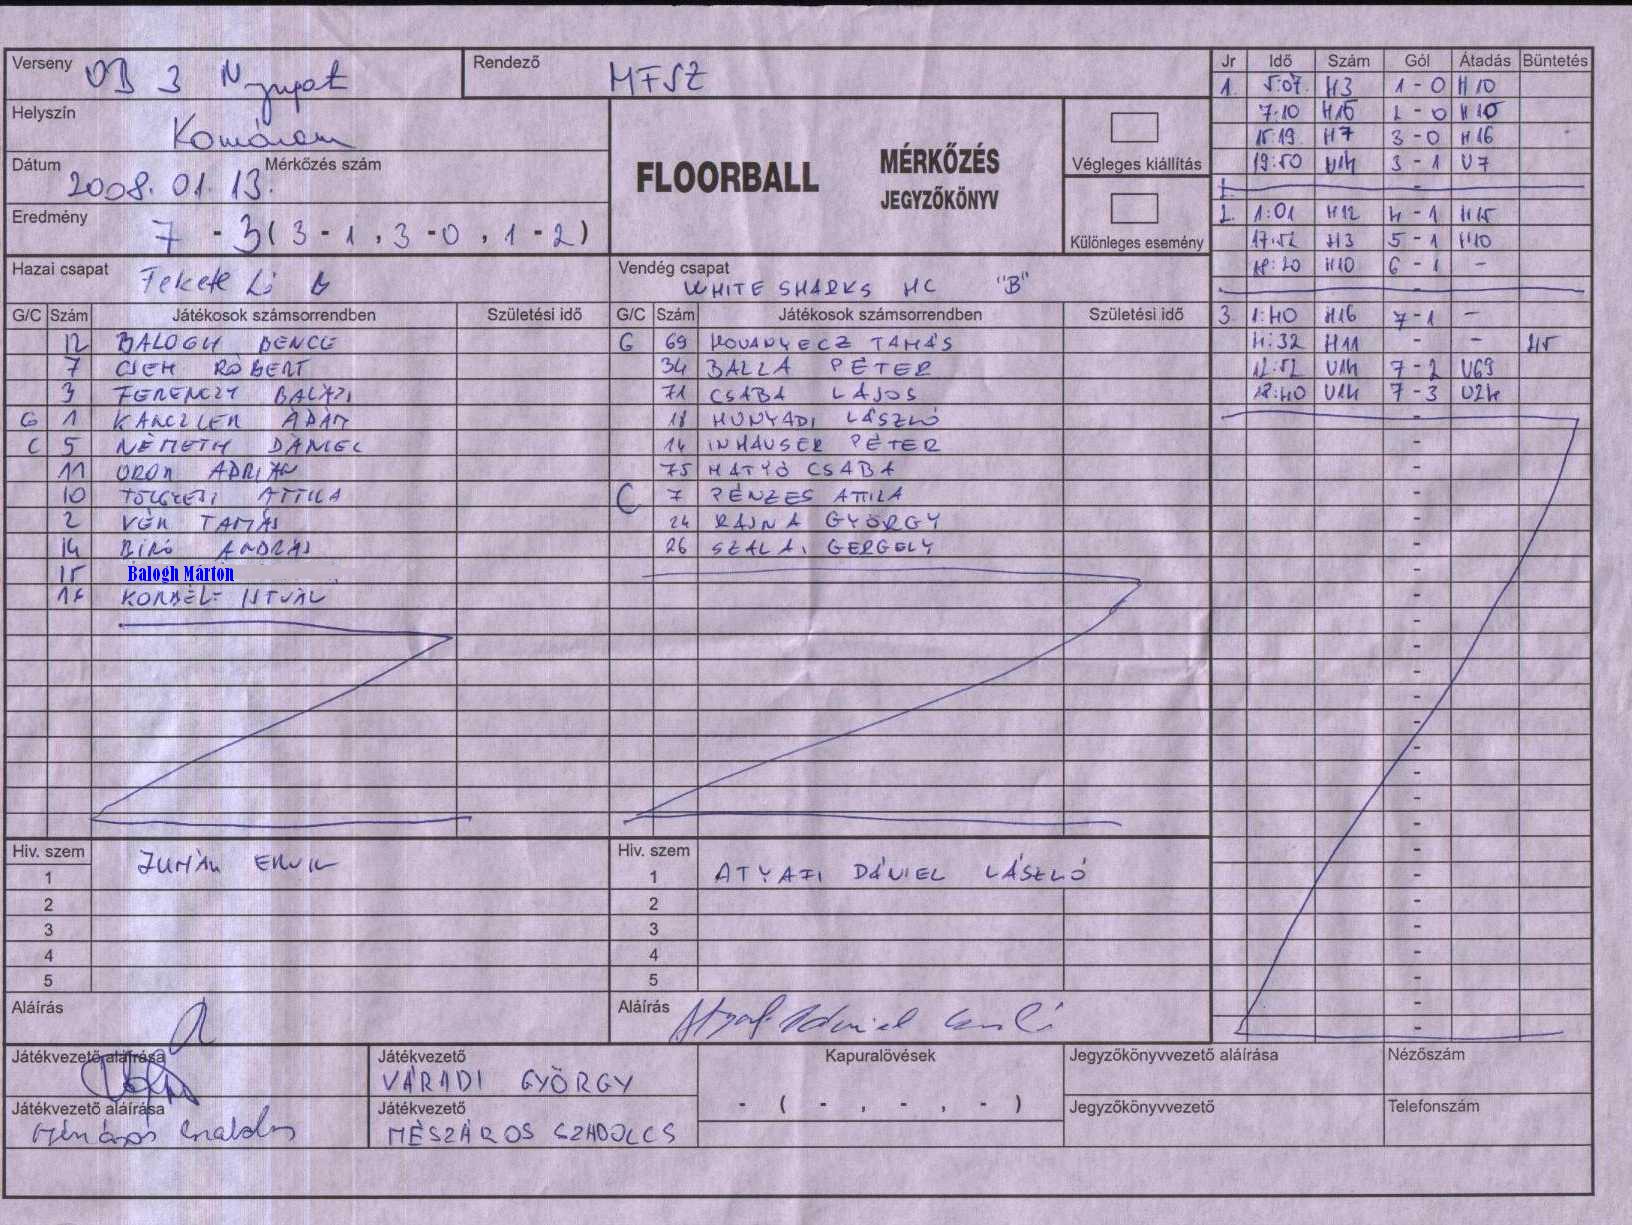 Verseny OB 3 Nyugat
Rendező MFSZ
Helyszín Komárom
Dátum 2008. 01. 13. Mérkőzés szám
Eredmény 7 - 3 ( 3 - 1 , 3 - 0 , 1 - 2 )
FLOORBALL
MÉRKŐZÉS
JEGYZŐKÖNYV
Végleges kiállítás
Különleges esemény
Hazai csapat Fekete Li B
G/C Szám Játékosok számsorrendben Születési idő
12 BALOGH BENCE
7 CSEH RÓBERT
3 FERENCZY BALÁZS
G 1 KANCZLER ÁDÁM
C 5 NÉMETH DÁNIEL
11 ORON ADRIÁN
10 TÖLGYESI ATTILA
2 VÉR TAMÁS
14 BIRÓ ANDRÁS
15 Balogh Márton
16 KORBÉLY ISTVÁN
Vendég csapat WHITE SHARKS HC "B"
G/C Szám Játékosok számsorrendben Születési idő
G 69 KOVANYECZ TAMÁS
34 BALLA PÉTER
71 CSABA LAJOS
18 HUNYADI LÁSZLÓ
14 INHAUSER PÉTER
75 MATYÓ CSABA
C 7 PÉNZES ATTILA
24 RAJNA GYÖRGY
26 SZALAI GERGELY
Jr Idő Szám Gól Átadás Büntetés
1. 5:07 H3 1 - 0 H10
7:10 H15 2 - 0 H10
15:19 H7 3 - 0 H16
19:50 V14 3 - 1 V7
-
2. 1:01 H12 4 - 1 H15
17:52 H3 5 - 1 H10
18:20 H10 6 - 1 -
-
3. 1:40 H16 7 - 1 -
4:32 H11 - - 
12:52 V14 7 - 2 V69
18:40 V14 7 - 3 V24
Hiv. szem
1 ERVIN
2
3
4
5
Aláírás
Hiv. szem
1 ATYAFI DÁNIEL LÁSZLÓ
2
3
4
5
Aláírás Atyafi Dániel László
Játékvezető aláírása
Játékvezető
VÁRADI GYÖRGY
Játékvezető aláírása
Mészáros Szabolcs
Játékvezető
MÉSZÁROS SZABOLCS
Kapuralövések
- ( - , - , - )
Jegyzőkönyvvezető aláírása
Jegyzőkönyvvezető
Nézőszám
Telefonszám